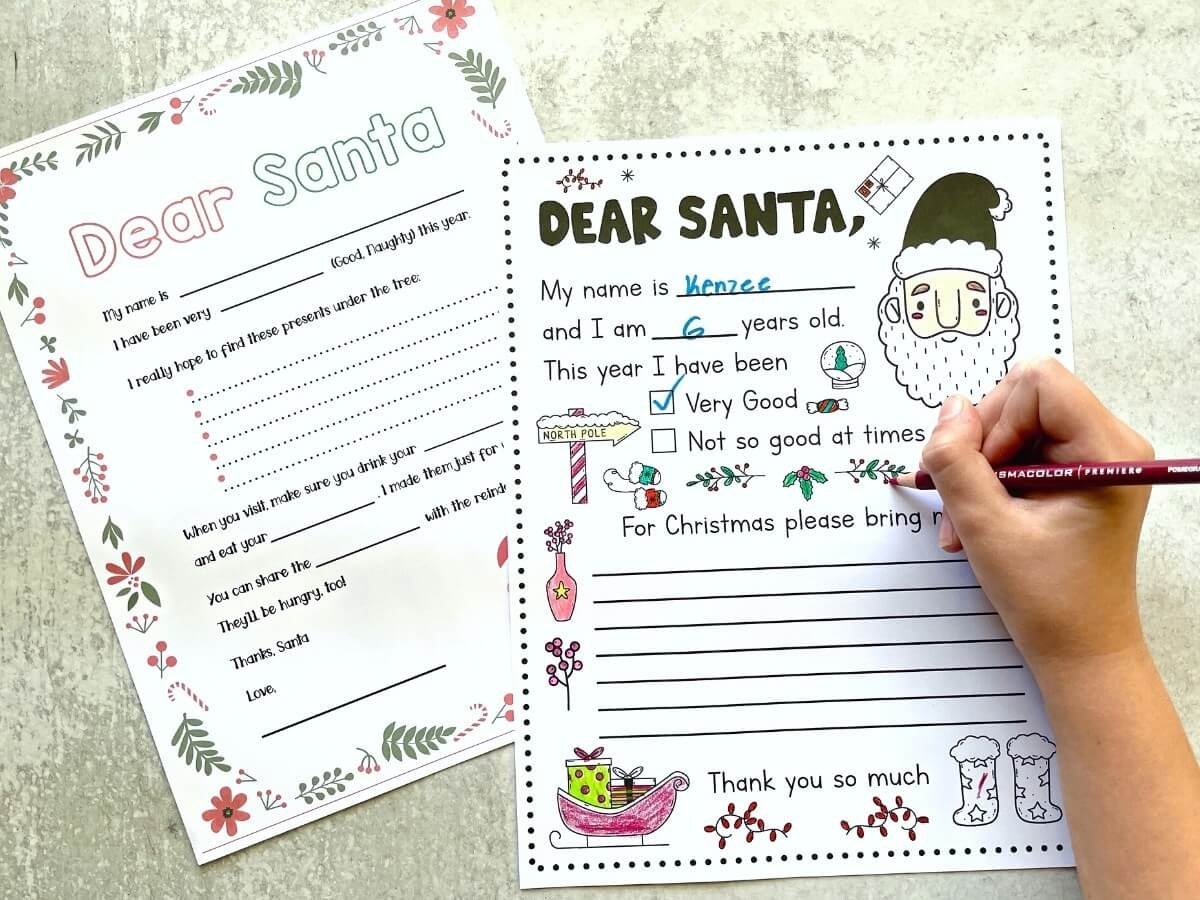 Dear Santa
My name is
I have been very (Good, Naughty) this year.
I really hope to find these presents under the tree:
When you visit, make sure you drink your
and eat your . I made them just for
You can share the with the
They'll be hungry, too!
Thanks, Santa
Love,
DEAR SANTA,
My name is Kenzee
and I am 6 years old.
This year I have been
Very Good
NORTH POLE
Not so good at times
For Christmas please bring
Thank you so much
PREMIER